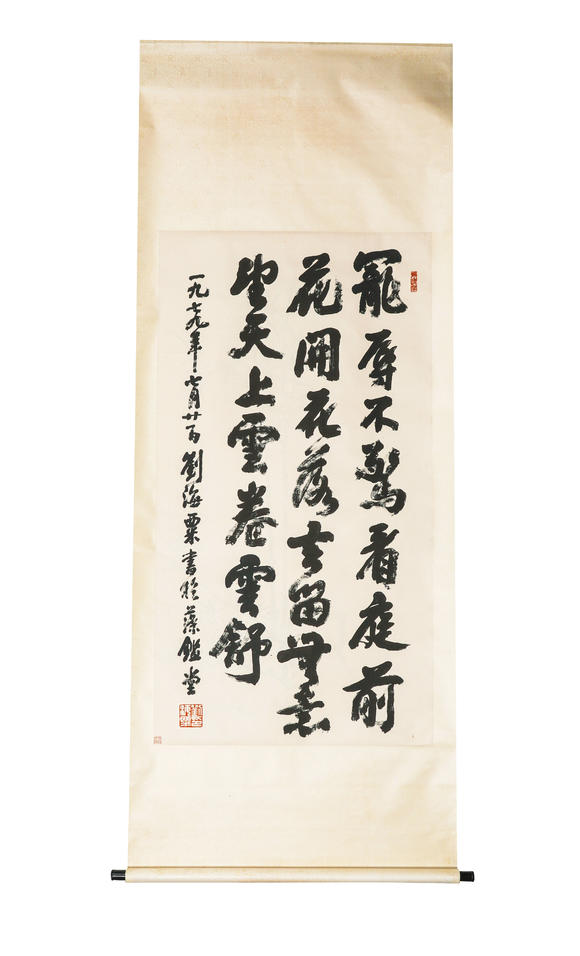 寵辱不驚看庭前
花開花落去留無意
望天上雲卷雲舒
一九七九年七月廿一日劉海粟書於藻鑑堂